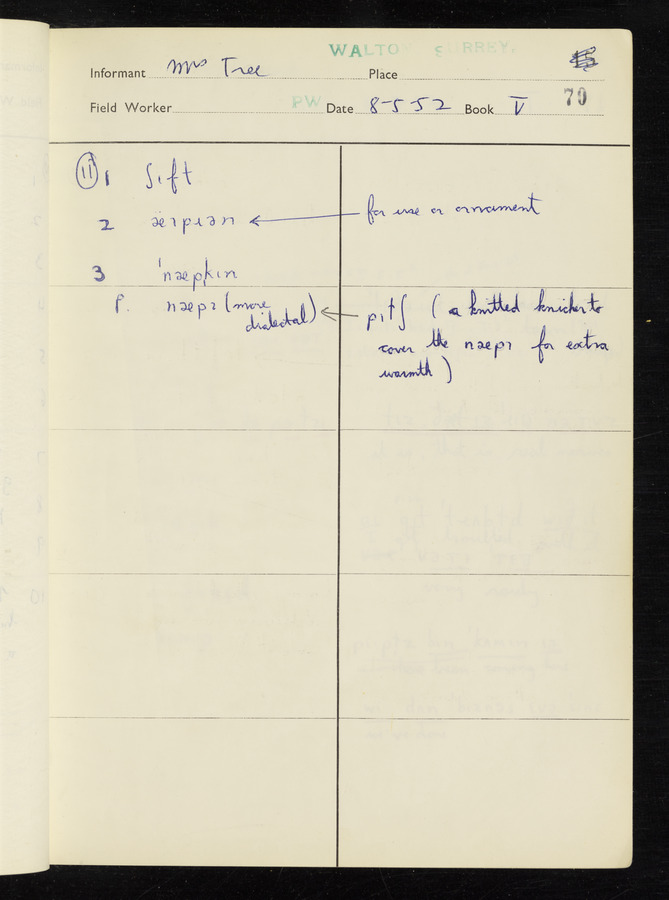 WALTO SURREY.
Informant Mrs Tree Place
Field Worker PW Date 8-5-52 Book V 79
11 1 ʃɪft
2 æɪpɹən ← for use or ornament
3 ˈnæpkɪn
P. næpɪ (more dialectal) ← pɪtʃ (a knitted knicker to
cover the næpɪ for extra
warmth)